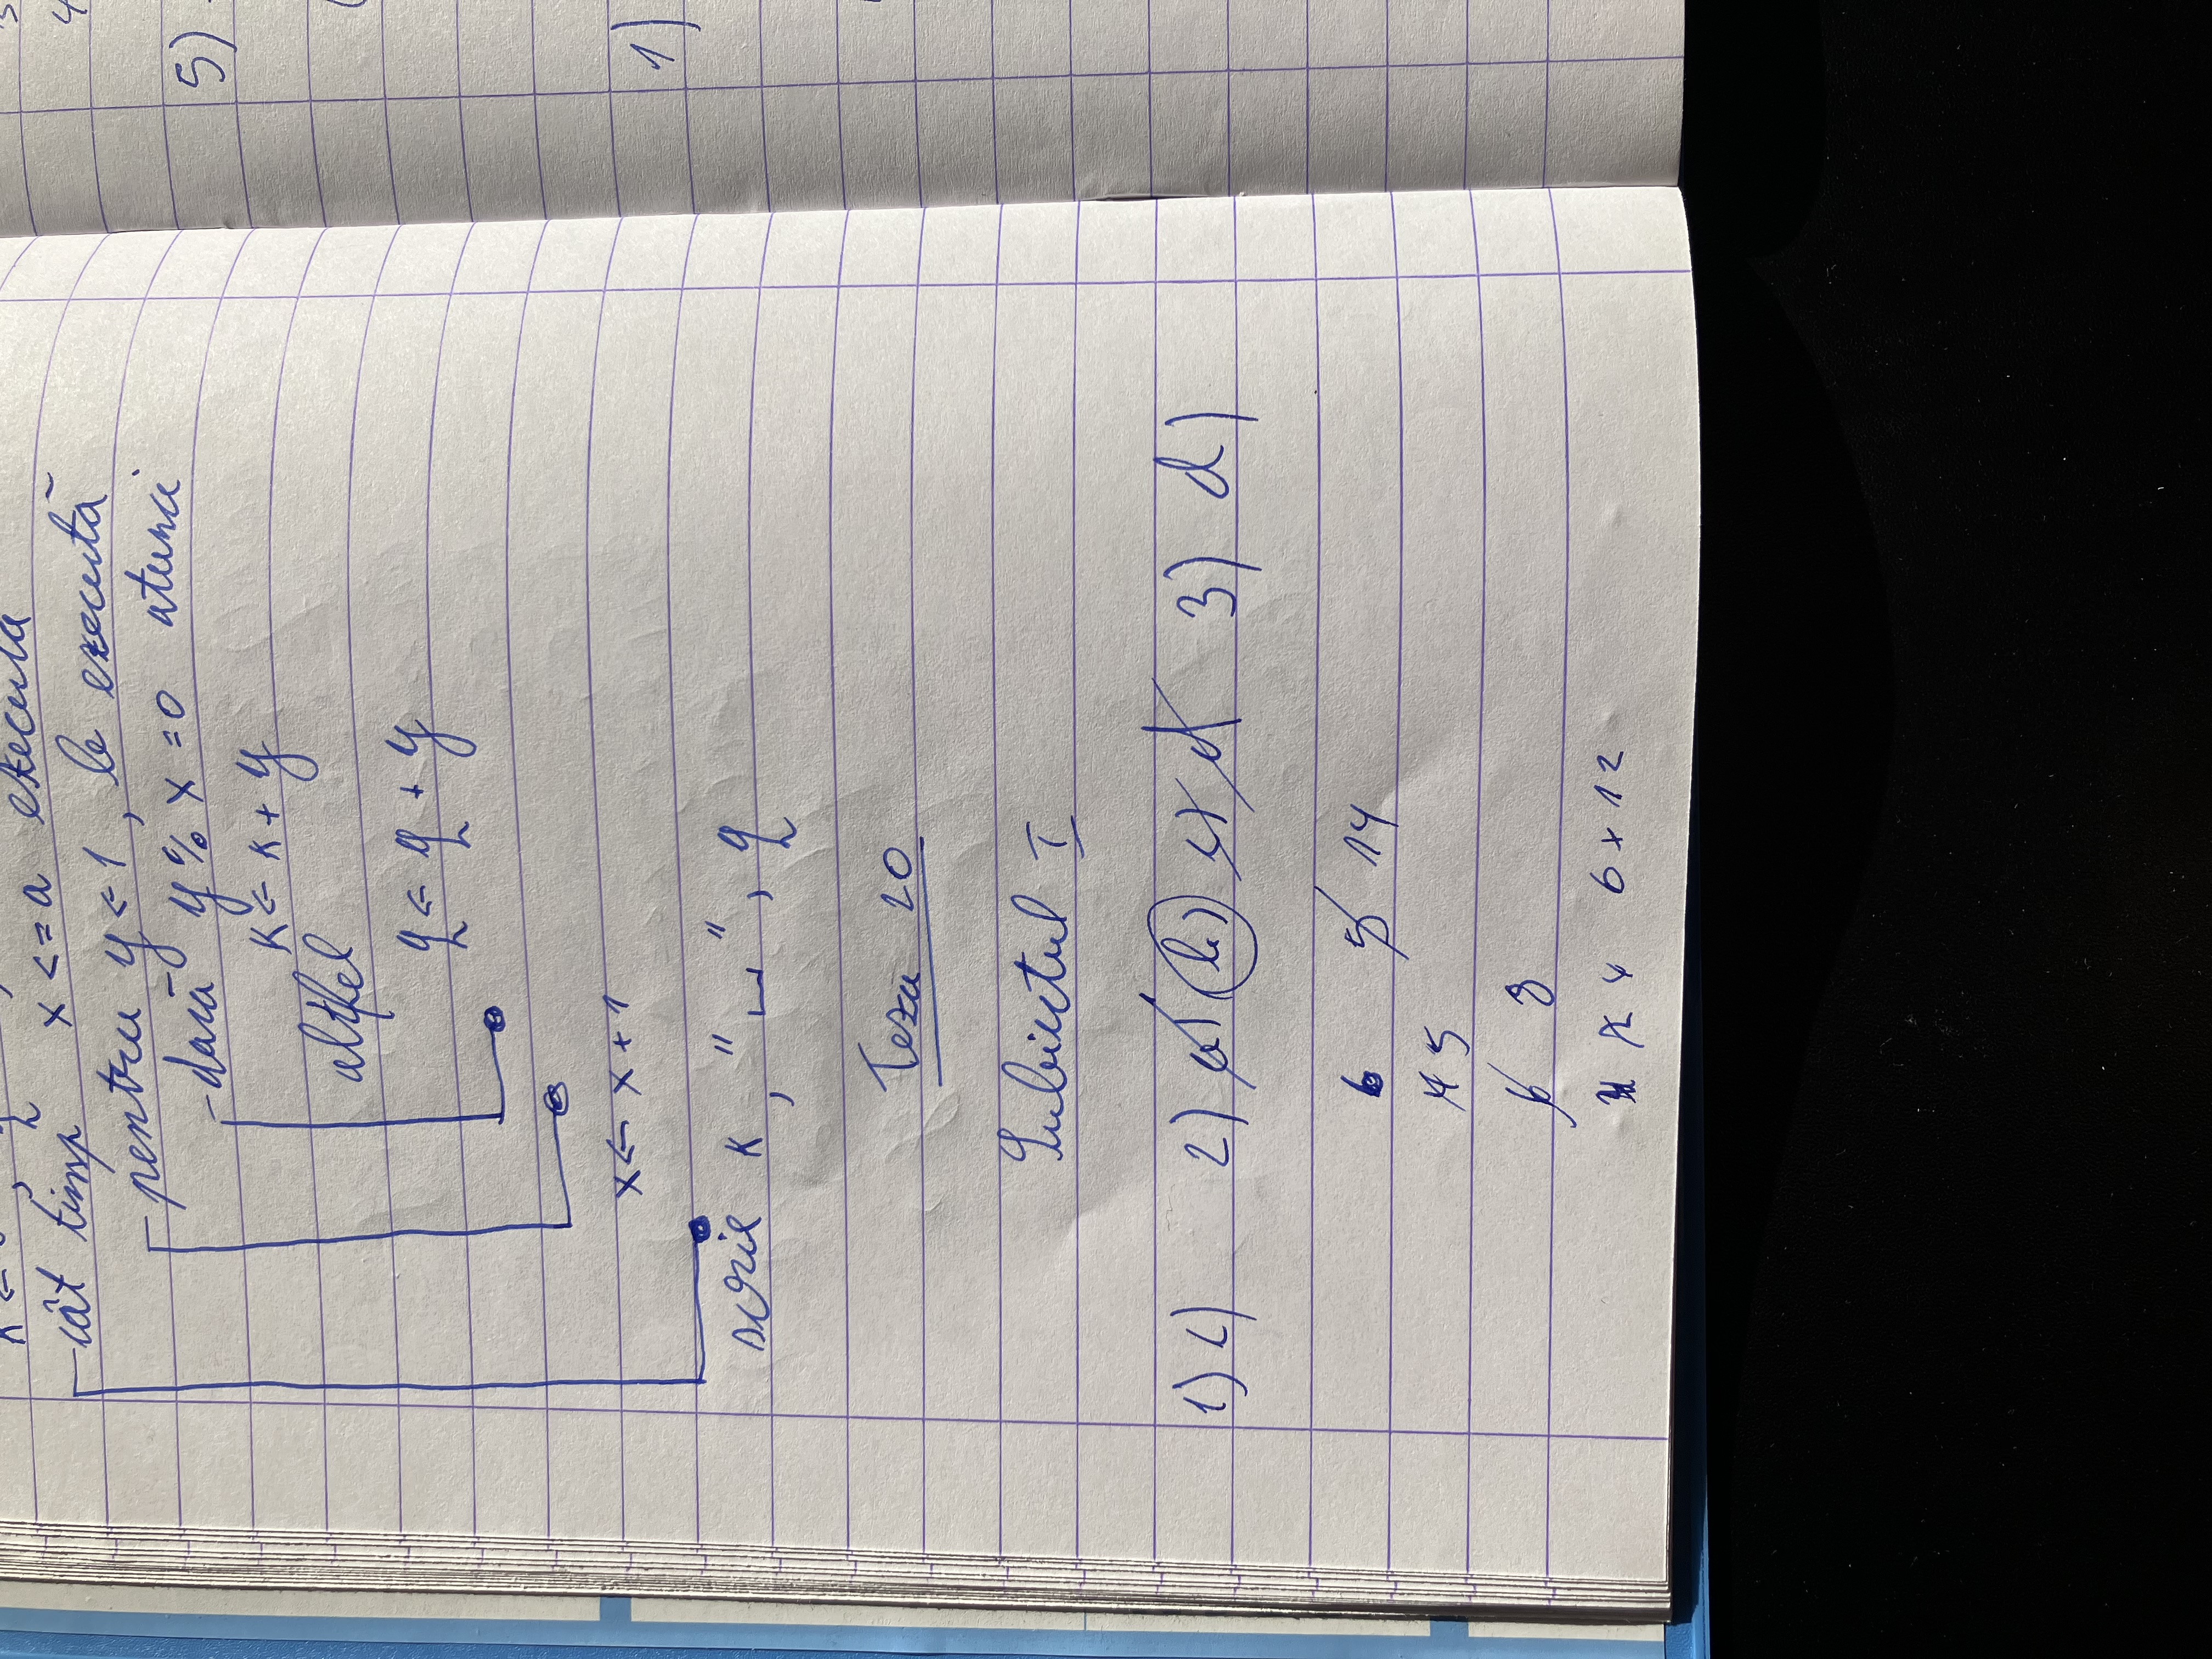 cât timp x <= a execută
pentru y ← 1, b execută
dacă y % x = 0 atunci
k ← k + y
altfel
q ← q + y
x ← x + 1
scrie k, "␣", q
Teza 20
Subiectul I
1) c) 2) a) b) c) d) 3) d)
6 5 14
4 5
6 8
4 6 x 12
5)
1)